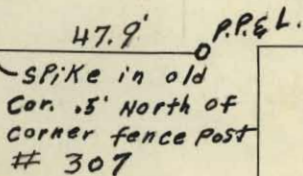 47.9'
P.P.&L.
SPiKe in old
Cor. .5' North of
Corner fence Post
# 307